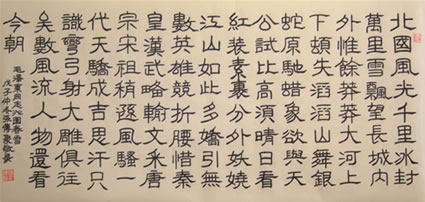 北國風光千里冰封
萬里雪飄望長城內
外惟餘莽莽大河上
下頓失滔滔山舞銀
蛇原馳蠟象欲與天
公試比高須晴日看
紅裝素裹分外妖嬈
江山如此多嬌引無
數英雄競折腰惜秦
皇漢武略輸文采唐
宗宋祖稍遜風騷一
代天驕成吉思汗只
識彎弓射大雕俱往
矣數風流人物還看
今朝
毛澤東同志沁園春雪
戊子仲冬張傳